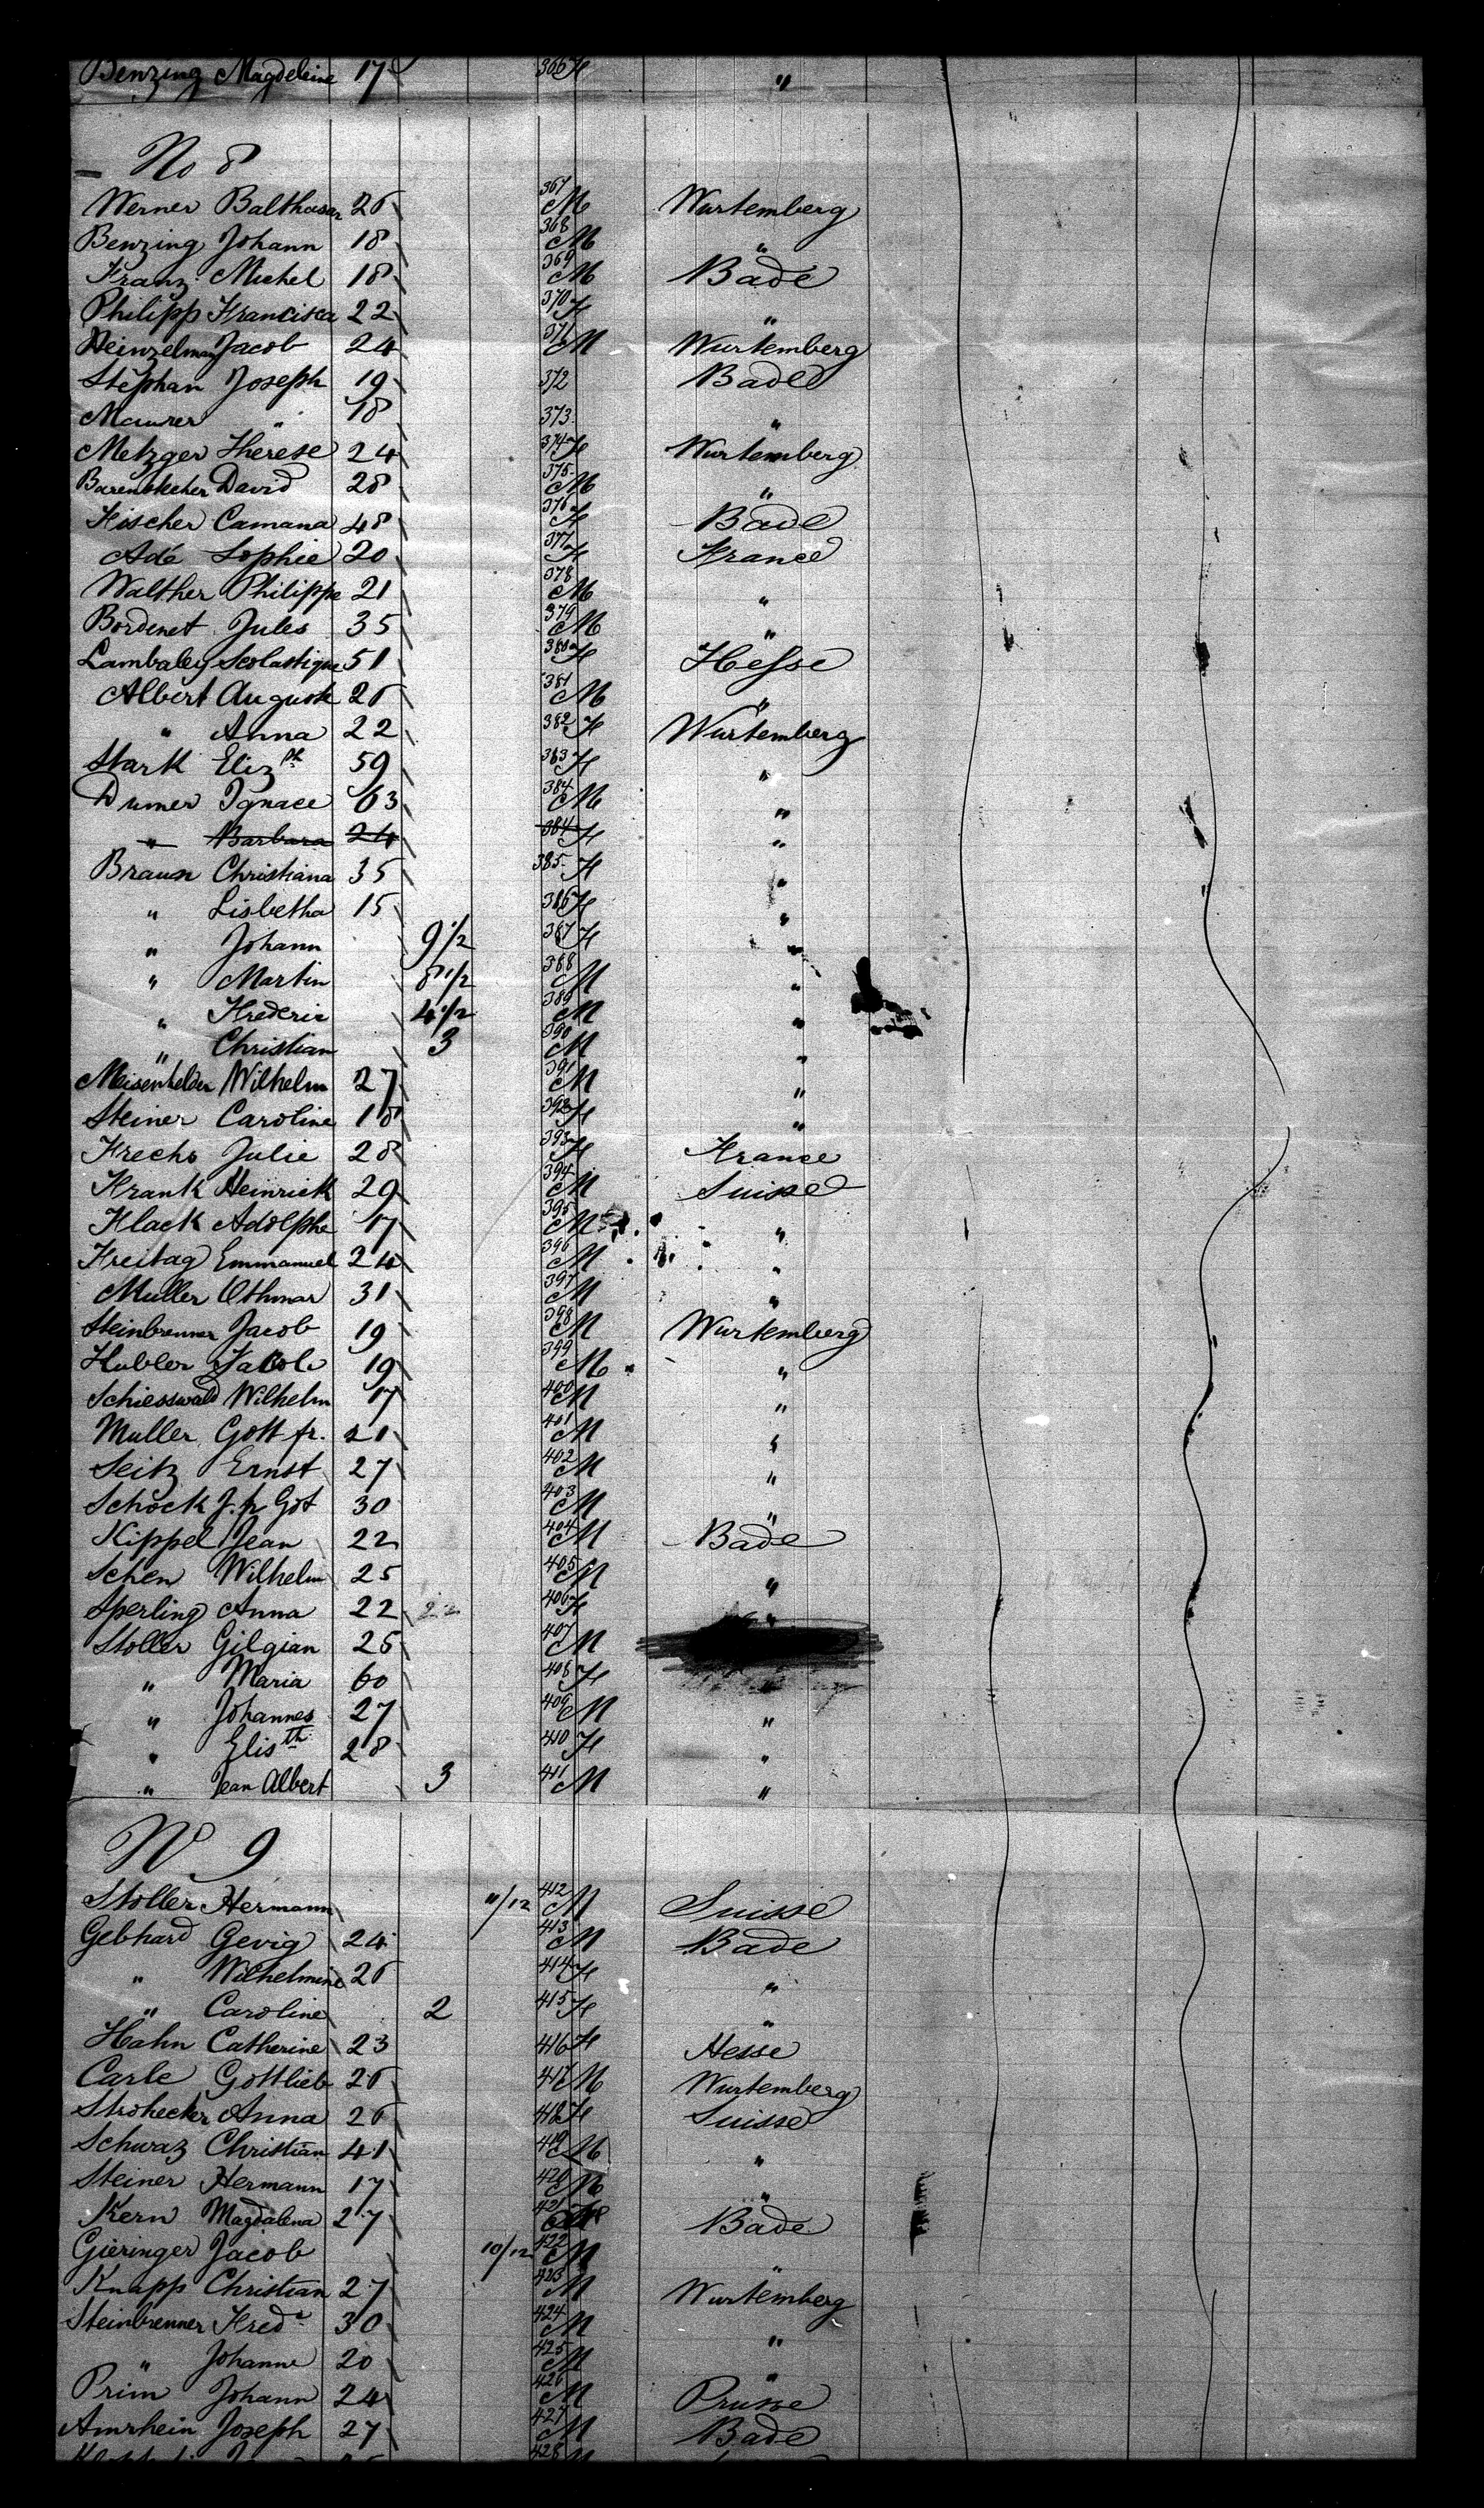 Benzing Magdeleine 17 366 F "
No 8
Werner Balthasar 26 367 M Wurtemberg
Benzing Johann 18 368 M "
Franz Michel 18 369 M Bade
Philipp Francisca 22 370 F "
Heinzelman Jacob 24 371 M Wurtemberg
Stephan Joseph 19 372 Bade
Maurer " 18 373 "
Metzger Therese 24 374 F Wurtemberg
David 28 375 M "
Fischer Camana 48 376 F Bade
Adé Sophie 20 377 F France
Walther Philippe 21 378 M "
Bordenet Jules 35 379 M "
Lambaley Scolastique 51 380 F Hesse
Albert August 26 381 M "
" Anna 22 382 F Wurtemberg
Stark Eliz th 59 383 F "
Dumer Ignace 63 384 M "
" Barbara 24 384 F "
Braun Christiana 35 385 F "
" Lisbetha 15 386 F "
" Johann 9 1/2 387 F "
" Martin 8 1/2 388 M "
" Frederic 4 1/2 389 M "
" Christian 3 390 M "
Meisenhelder Wilhelm 27 391 M "
Steiner Caroline 18 392 F "
Frechs Julie 28 393 F France
Frank Heinrich 29 394 M Suisse
Flack Adolphe 17 395 M "
Freitag Emmanuel 24 396 M "
Muller Othmar 31 397 M "
Steinbrenner Jacob 19 398 M Wurtemberg
Hubler Jacob 19 399 M "
Schiesswald Wilhelm 17 400 M "
Muller Gottfr. 21 401 M "
Seitz Ernst 27 402 M "
Schock J. h Got 30 403 M "
Kippel Jean 22 404 M Bade
Schen Wilhelm 25 405 M "
Sperling Anna 22 22 406 F "
Stoller Gilgian 25 407 M
" Maria 60 408 F
" Johannes 27 409 M "
" Elis th 28 410 F "
" Jean Albert 3 411 M "
No 9
Stoller Hermann 11/12 412 M Suisse
Gebhard Gevig 24 413 M Bade
" Wilhelmine 26 414 F "
" Caroline 2 415 F "
Hahn Catherine 23 416 F Hesse
Carle Gottlieb 26 417 M Wurtemberg
Strohecker Anna 26 418 F Suisse
Schwaz Christian 41 419 M "
Steiner Hermann 17 420 M "
Kern Magdalena 27 421 Bade
Gieringer Jacob 10/12 422 M "
Knapp Christian 27 423 M Wurtemberg
Steinbrenner Fred c 30 424 M "
" Johanne 20 425 M "
Prim Johann 24 426 M Prusse
Amrhein Joseph 27 427 M Bade
428